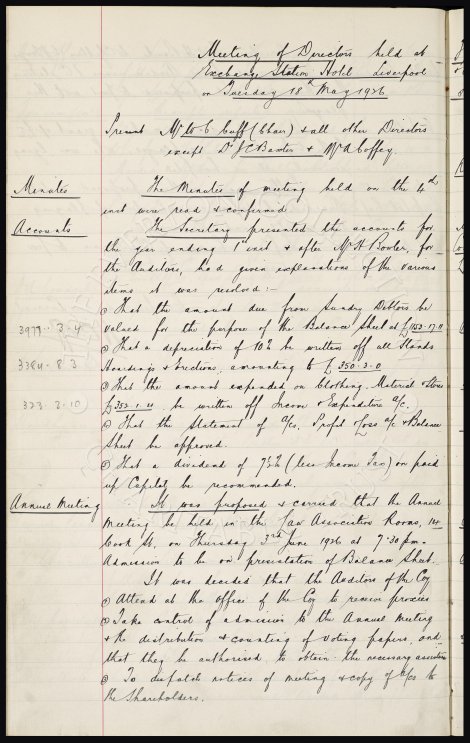 Meeting of Directors held at
Exchange Station Hotel Liverpool
on Tuesday 18th May 1926
Present Mr W C Cuff (Chair) & all other Directors
except Dr J C Baxter & Mr A Coffey.
Minutes
The Minutes of meeting held on the 4th
inst were read & confirmed
Accounts
The Secretary presented the accounts for
the year ending 1st inst & after Mr H Bowler, for
the Auditors, had given explanations of the various
items it was resolved:-
That the amount due from Sundry Debtors be
valued for the purpose of the Balance Sheet at £1153-17-11
3977-3-4
That a depreciation of 10% be written off all Stands
Hoardings & Erections, amounting to £350-3-0
3384-8 3
That the amount expended on Clothing, Material & Stores
£352-1-11 be written off Income & Expenditure a/c.
323-2-10
That the Statement of a/cs, Profit & Loss a/c & Balance
Sheet be approved.
That a dividend of 7½% (less Income Tax) on paid
up Capital, be recommended.
Annual Meeting
It was proposed & carried that the Annual
Meeting be held in the Law Association Rooms, 14
Cook St, on Thursday 3rd June 1926 at 7.30 pm.
Admission to be on presentation of Balance Sheet.
It was decided that the Auditors of the Coy
Attend at the office of the Coy to receive proxies
Take control of admission to the Annual Meeting
& the distribution & counting of voting papers, and
that they be authorised to obtain the necessary assistance
To despatch notices of meeting & copy of a/cs to
the Shareholders.